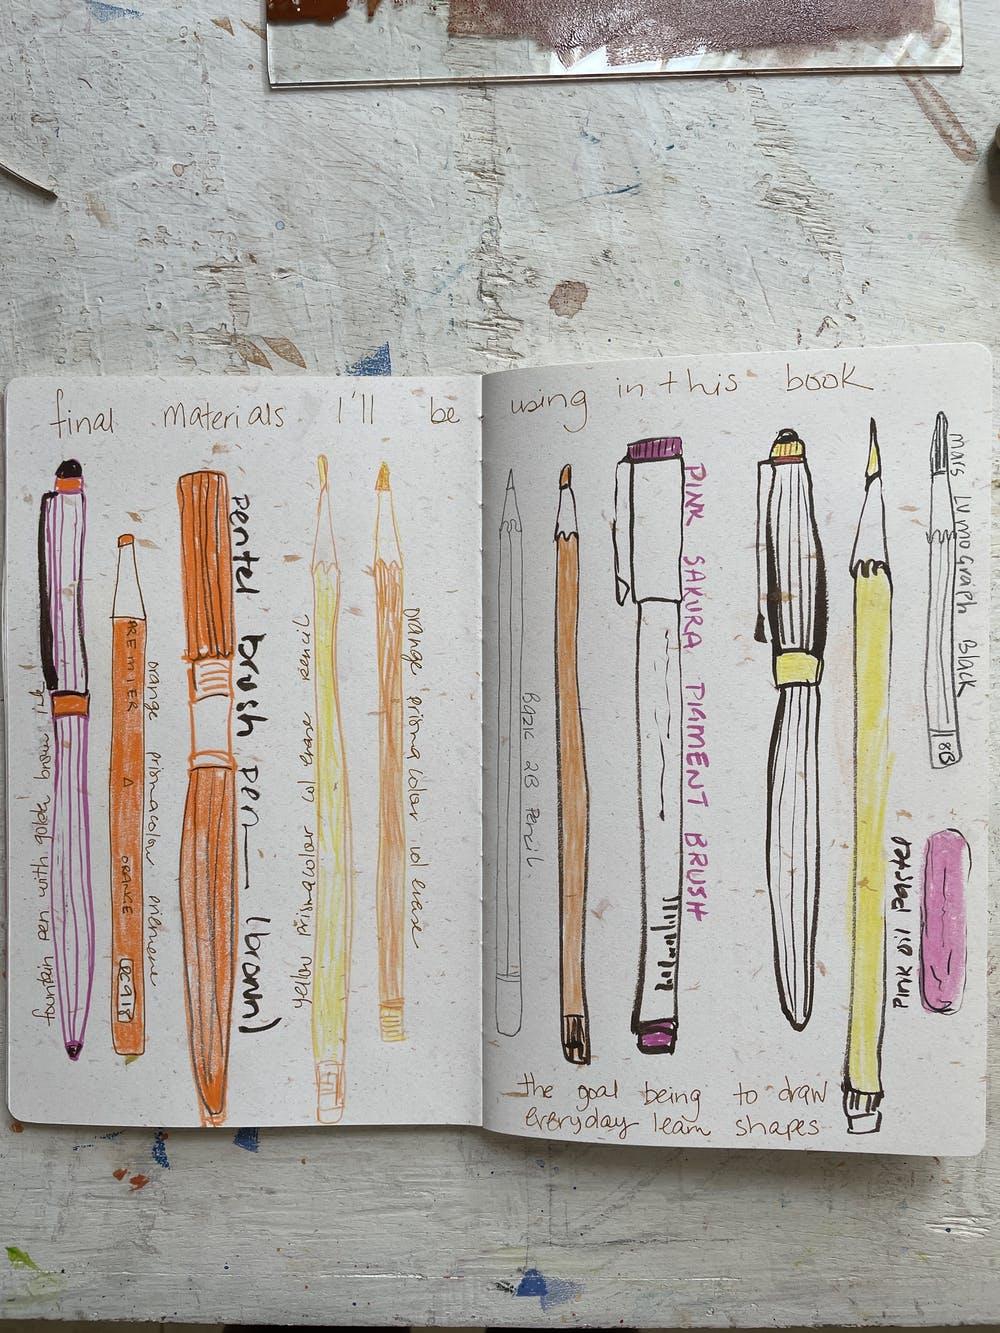 final materials I'll be using in this book
fountain pen with golden brown ink
PREMIER
ORANGE
orange prismacolor premiere
pentel brush pen (brown)
yellow prismacolor col erase pencil
orange prismacolor col erase
Bazic 2B Pencil.
PINK SAKURA PIGMENT BRUSH
mars Lumograph Black
8B
Pink oil pastel
the goal being to draw
everyday learn shapes